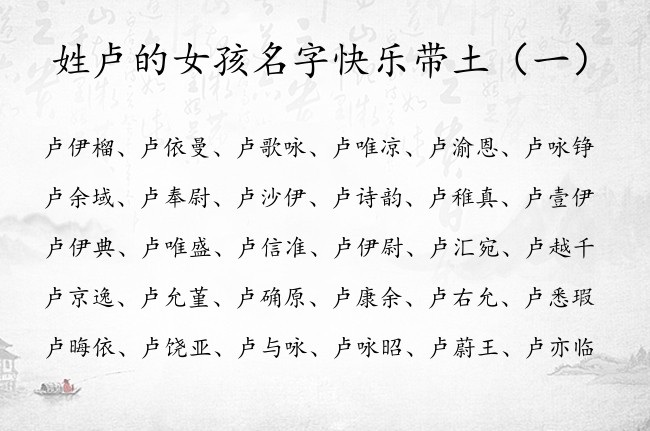 姓卢的女孩名字快乐带土（一）
卢伊榴、卢依曼、卢歌咏、卢唯凉、卢渝恩、卢咏铮
卢余域、卢奉尉、卢沙伊、卢诗韵、卢稚真、卢壹伊
卢伊典、卢唯盛、卢信准、卢伊尉、卢汇宛、卢越千
卢京逸、卢允堇、卢确原、卢康余、卢右允、卢悉瑕
卢晦依、卢饶亚、卢与咏、卢咏昭、卢蔚王、卢亦临